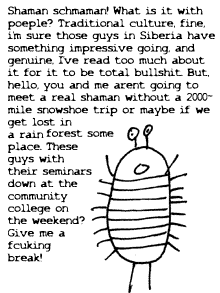 Shaman schmaman! What is it with
poeple? Traditional culture, fine,
i'm sure those guys in Siberia have
something impressive going, and
genuine, I've read too much about
it for it to be total bullshit. But,
hello, you and me arent going to
meet a real shaman without a 2000-
mile snowshoe trip or maybe if we
get lost in
a rain forest some
place. These
guys with
their seminars
down at the
community
college on
the weekend?
Give me a
fcuking
break!